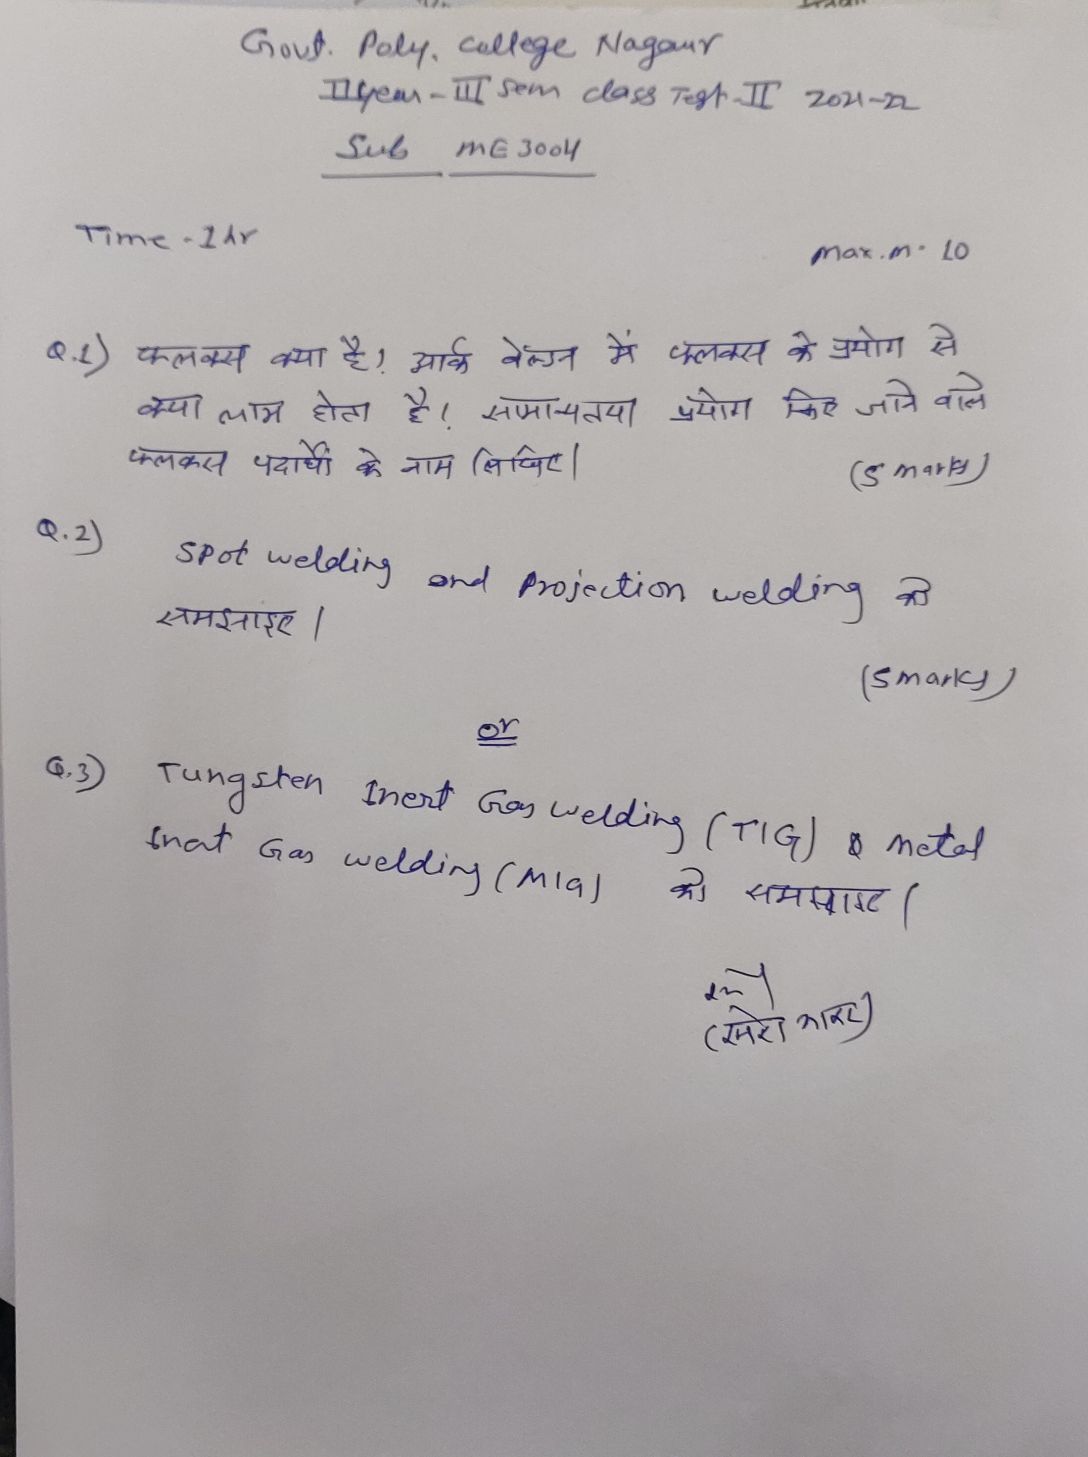 Govt. Poly. College Nagaur
II Year - III Sem class Test-II 2021-22
Sub ME 3004
Time - 1 hr
Max. m. 10
Q.1) फ्लक्स क्या है? आर्क वेल्डन में फ्लक्स के प्रयोग से
क्या लाभ होता है? सामान्यतया प्रयोग किए जाने वाले
फ्लक्स पदार्थों के नाम लिखिए।
(5 marks)
Q.2) Spot welding and Projection welding को
समझाइए।
(5 marks)
or
Q.3) Tungsten Inert Gas welding (TIG) & Metal
Inert Gas welding (MIG) को समझाइए।